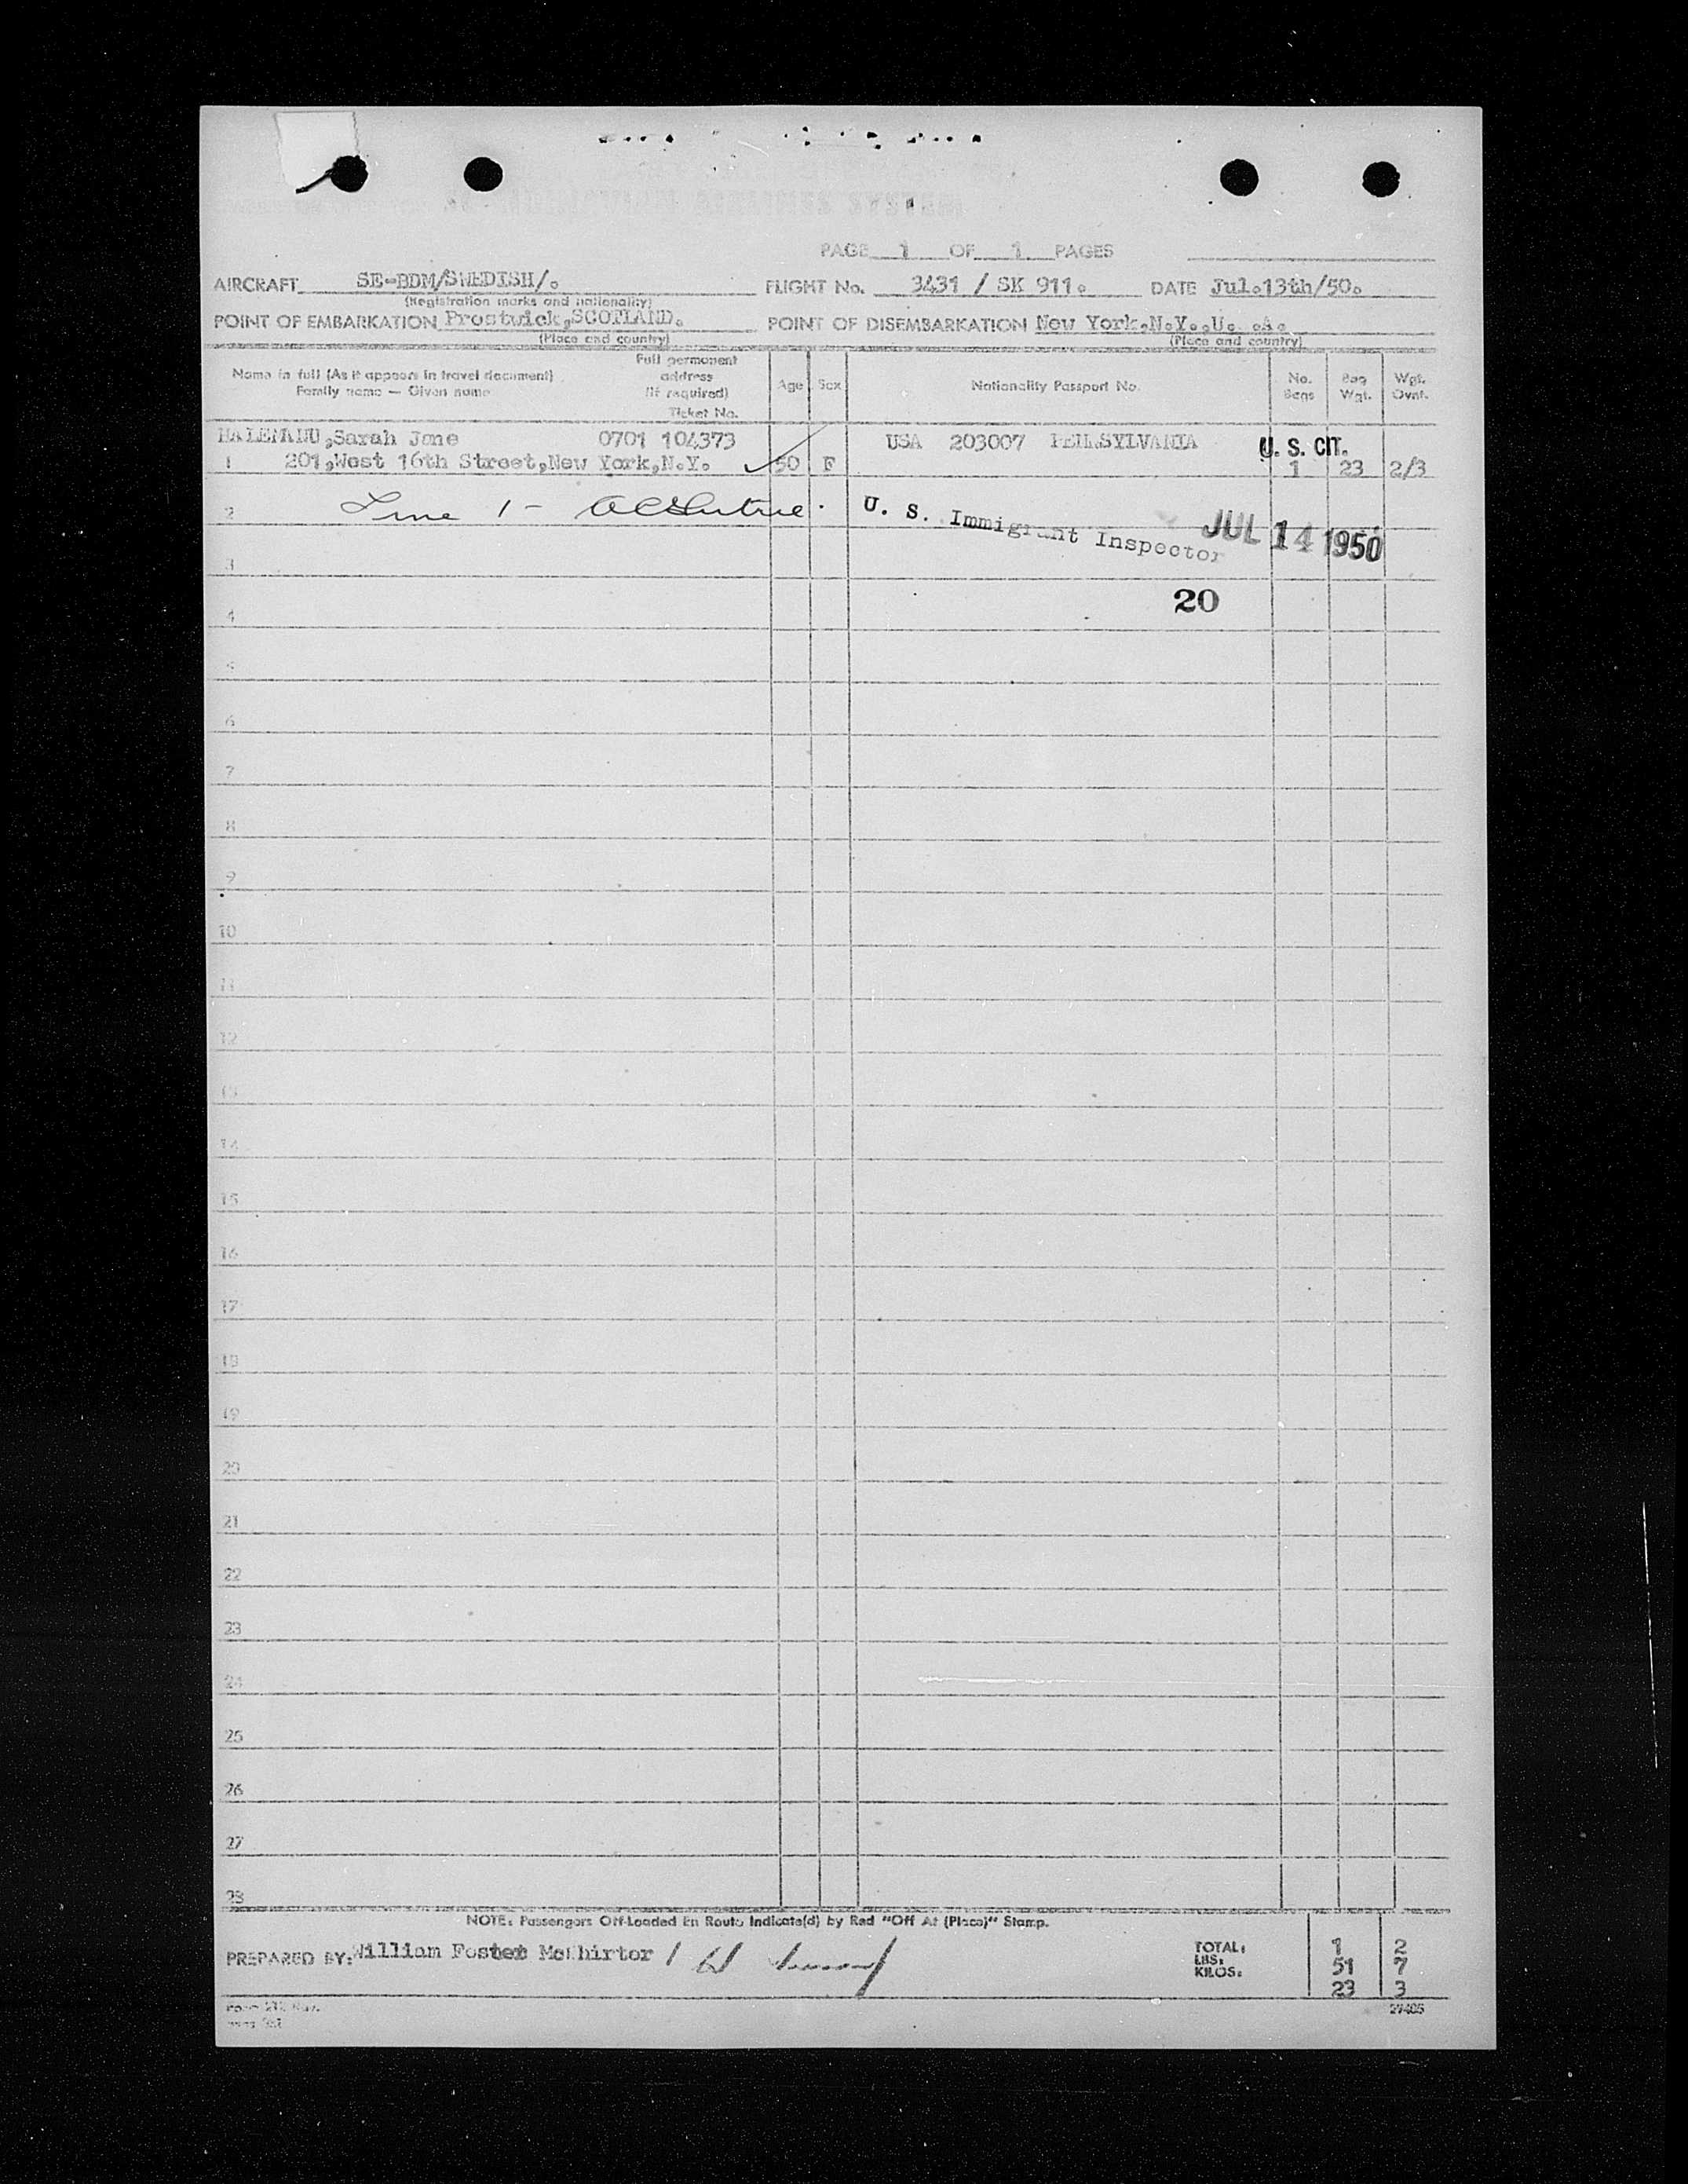 AIRLINES SYSTEM
PAGE 1 OF 1 PAGES
AIRCRAFT SE-BDM/SWEDISH/. FLIGHT No. 3431 / SK 911. DATE Jul.13th/50.
(Registration marks and nationality)
POINT OF EMBARKATION Prestwick,SCOTLAND. POINT OF DISEMBARKATION New York,N.Y.,U. .A.
(Place and country) (Place and country)
Name in full (As it appears in travel document) Full permanent address (If required) Age Sex Nationality Passport No. No. Bags Bag Wgt. Wgt. Ovnt.
Family name — Given name Ticket No.
Sarah Jane 0701 104373 USA 203007 PENNSYLVANIA U. S. CIT.
1 201,West 16th Street,New York,N.Y. 50 F 1 23 2/3
2 Line 1 - U. S. Immigrant Inspector JUL 14 1950
3
20
4
5
6
7
8
9
10
11
12
13
14
15
16
17
18
19
20
21
22
23
24
25
26
27
28
NOTE: Passengers Off-Loaded En Route Indicate(d) by Red "Off At (Place)" Stamp.
PREPARED BY: William Foster / W TOTAL: 1 2
LBS. 51 7
KILOS. 23 3
27405